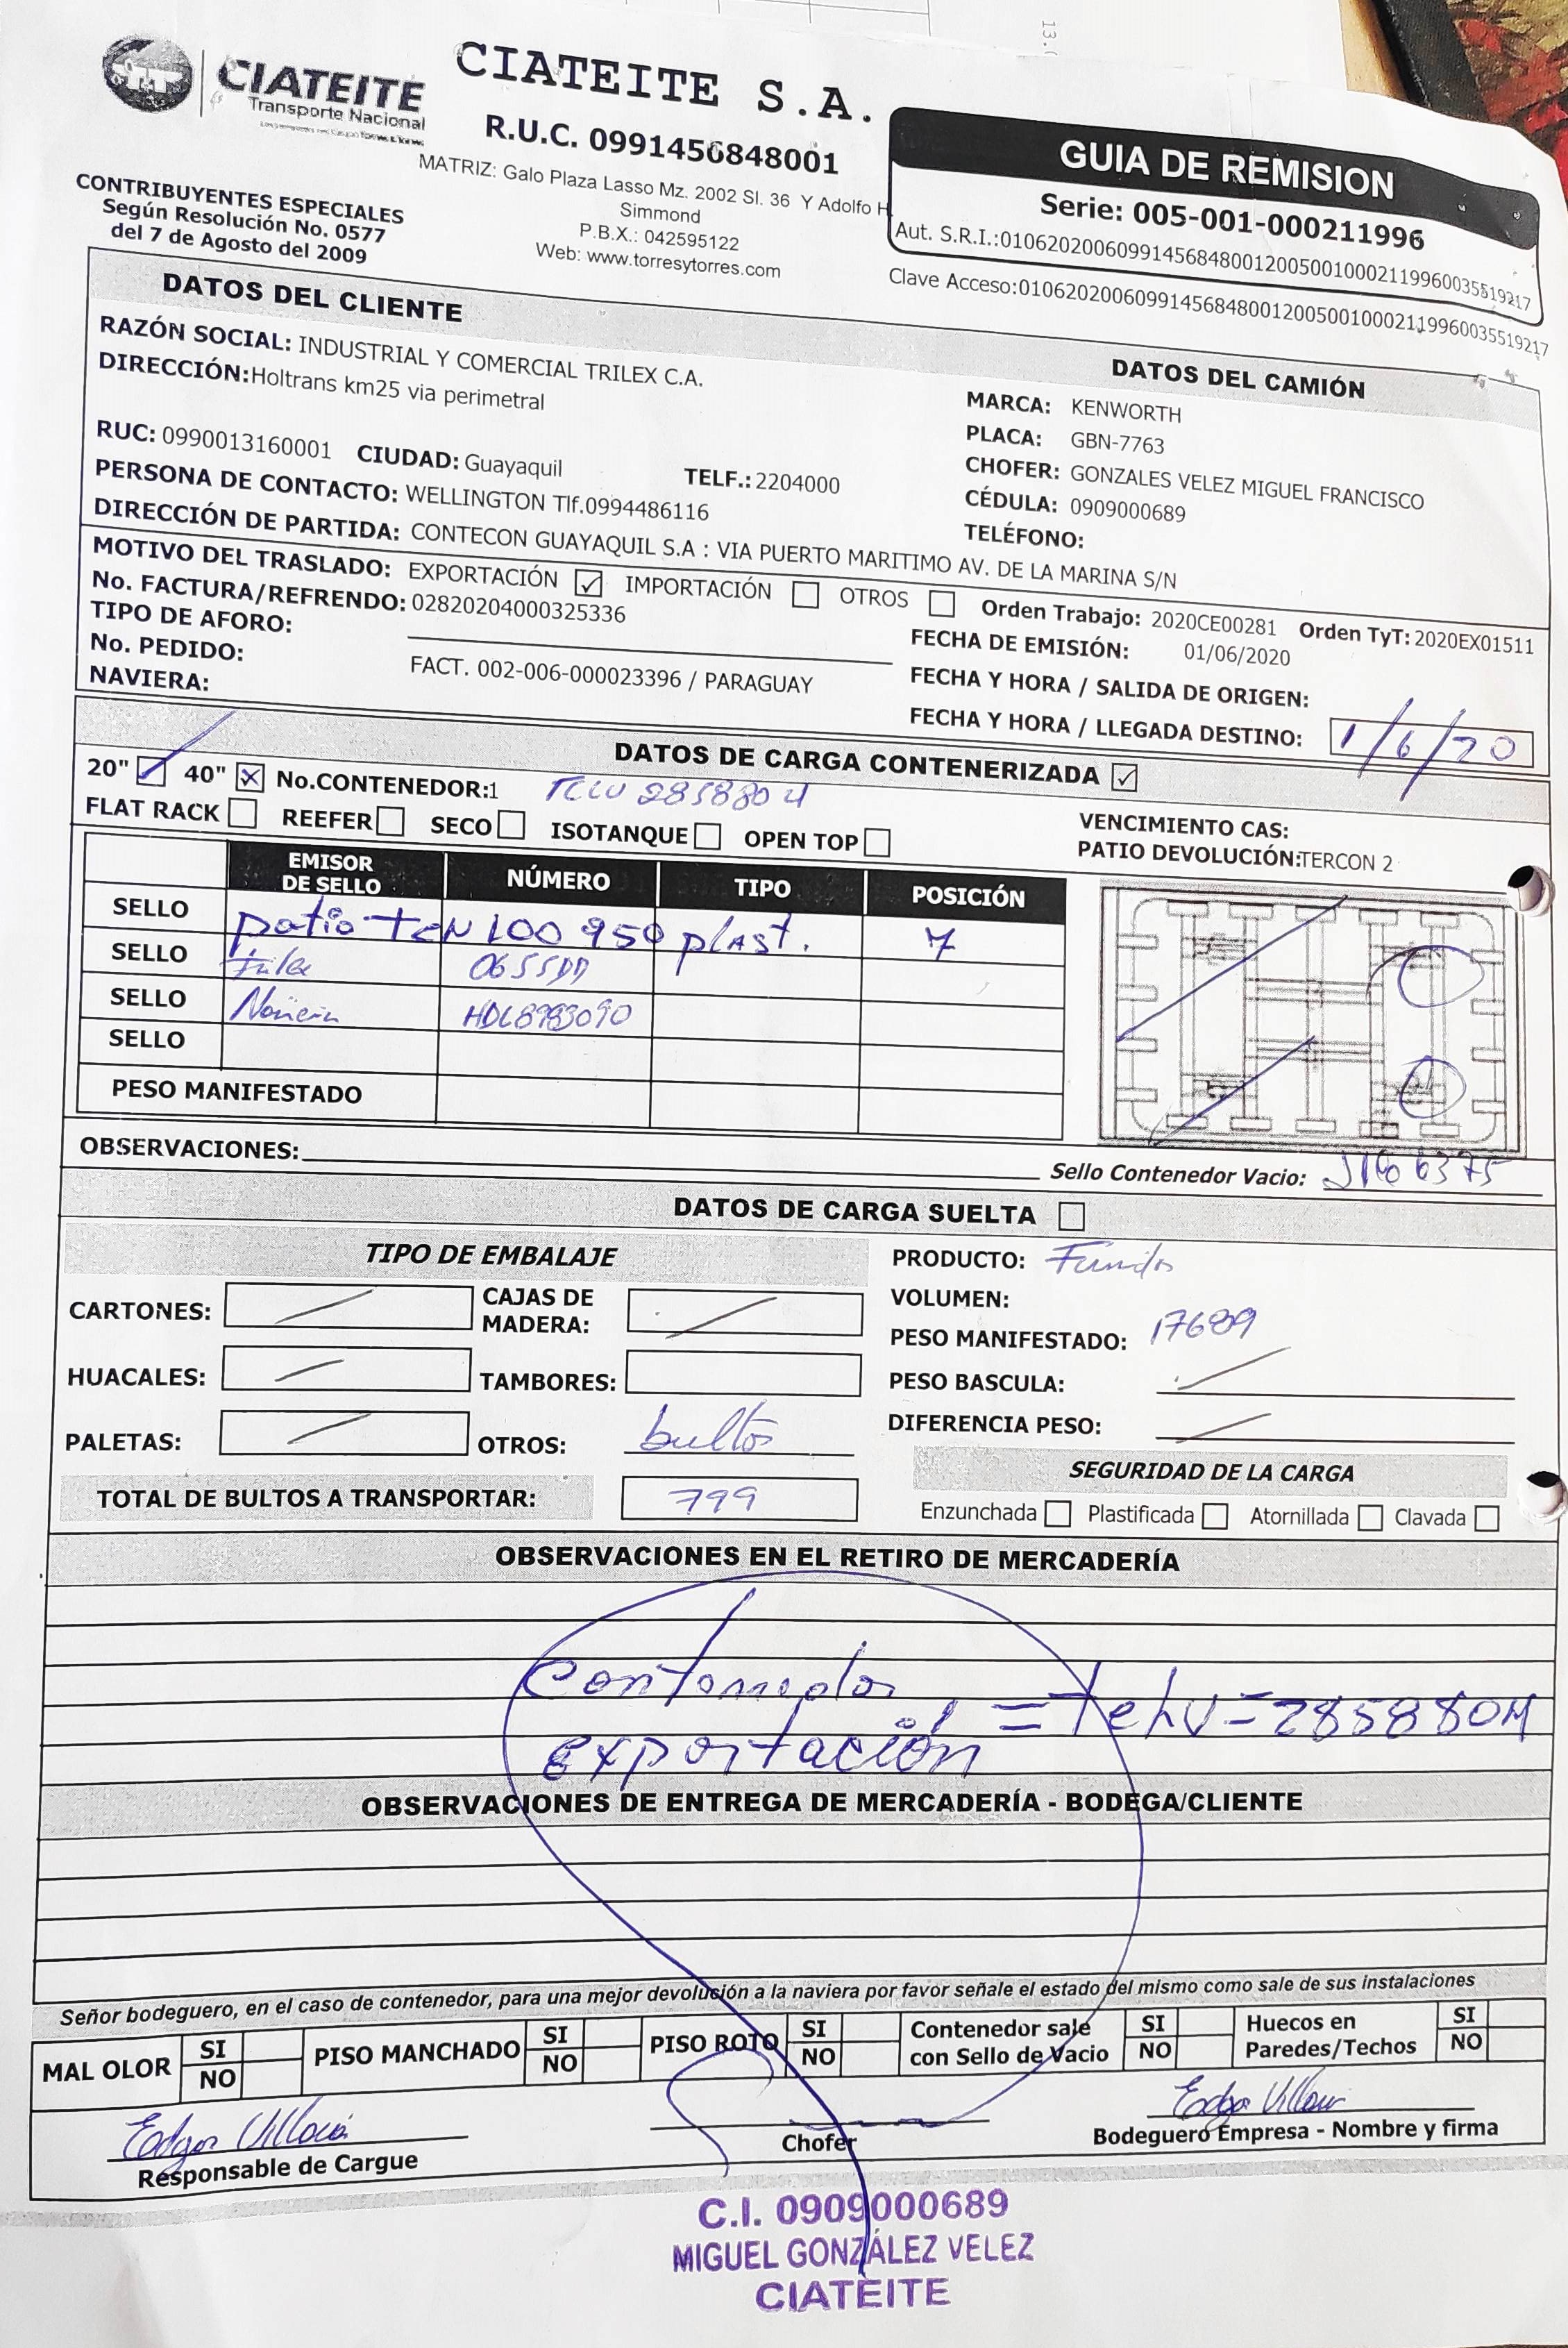 CIATEITE
Transporte Nacional
CIATEITE S.A.
R.U.C. 0991456848001
MATRIZ: Galo Plaza Lasso Mz. 2002 Sl. 36 Y Adolfo H
Simmond
P.B.X.: 042595122
Web: www.torresytorres.com
CONTRIBUYENTES ESPECIALES
Según Resolución No. 0577
del 7 de Agosto del 2009
GUIA DE REMISION
Serie: 005-001-000211996
Aut. S.R.I.:0106202006099145684800120050010002119960035519217
Clave Acceso:0106202006099145684800120050010002119960035519217
DATOS DEL CLIENTE
RAZÓN SOCIAL: INDUSTRIAL Y COMERCIAL TRILEX C.A.
DIRECCIÓN:Holtrans km25 via perimetral
RUC: 0990013160001 CIUDAD: Guayaquil TELF.: 2204000
PERSONA DE CONTACTO: WELLINGTON Tlf.0994486116
DIRECCIÓN DE PARTIDA: CONTECON GUAYAQUIL S.A : VIA PUERTO MARITIMO AV. DE LA MARINA S/N
DATOS DEL CAMIÓN
MARCA: KENWORTH
PLACA: GBN-7763
CHOFER: GONZALES VELEZ MIGUEL FRANCISCO
CÉDULA: 0909000689
TELÉFONO:
MOTIVO DEL TRASLADO: EXPORTACIÓN IMPORTACIÓN OTROS Orden Trabajo: 2020CE00281 Orden TyT: 2020EX01511
No. FACTURA/REFRENDO: 02820204000325336
TIPO DE AFORO:
No. PEDIDO:
NAVIERA: FACT. 002-006-000023396 / PARAGUAY
FECHA DE EMISIÓN: 01/06/2020
FECHA Y HORA / SALIDA DE ORIGEN:
FECHA Y HORA / LLEGADA DESTINO: 1/6/20
DATOS DE CARGA CONTENERIZADA
20" 40" No.CONTENEDOR:1 TCLU 2858804
FLAT RACK REEFER SECO ISOTANQUE OPEN TOP
VENCIMIENTO CAS:
PATIO DEVOLUCIÓN:TERCON 2
EMISOR DE SELLO NÚMERO TIPO POSICIÓN
SELLO patio TCN 100 950 plast. 7
SELLO 0655DD
SELLO HDL8983090
SELLO
PESO MANIFESTADO
OBSERVACIONES:
Sello Contenedor Vacio:
DATOS DE CARGA SUELTA
TIPO DE EMBALAJE
CARTONES: CAJAS DE MADERA:
HUACALES: TAMBORES:
PALETAS: OTROS: bultos
TOTAL DE BULTOS A TRANSPORTAR: 799
PRODUCTO: Fundas
VOLUMEN:
PESO MANIFESTADO: 17689
PESO BASCULA:
DIFERENCIA PESO:
SEGURIDAD DE LA CARGA
Enzunchada Plastificada Atornillada Clavada
OBSERVACIONES EN EL RETIRO DE MERCADERÍA
Contenedor
exportación = tcLU = 2858804
OBSERVACIONES DE ENTREGA DE MERCADERÍA - BODEGA/CLIENTE
Señor bodeguero, en el caso de contenedor, para una mejor devolución a la naviera por favor señale el estado del mismo como sale de sus instalaciones
MAL OLOR SI NO PISO MANCHADO SI NO PISO ROTO SI NO Contenedor sale con Sello de Vacio SI NO Huecos en Paredes/Techos SI NO
Responsable de Cargue
Chofer
Bodeguero Empresa - Nombre y firma
C.I. 0909000689
MIGUEL GONZÁLEZ VELEZ
CIATEITE